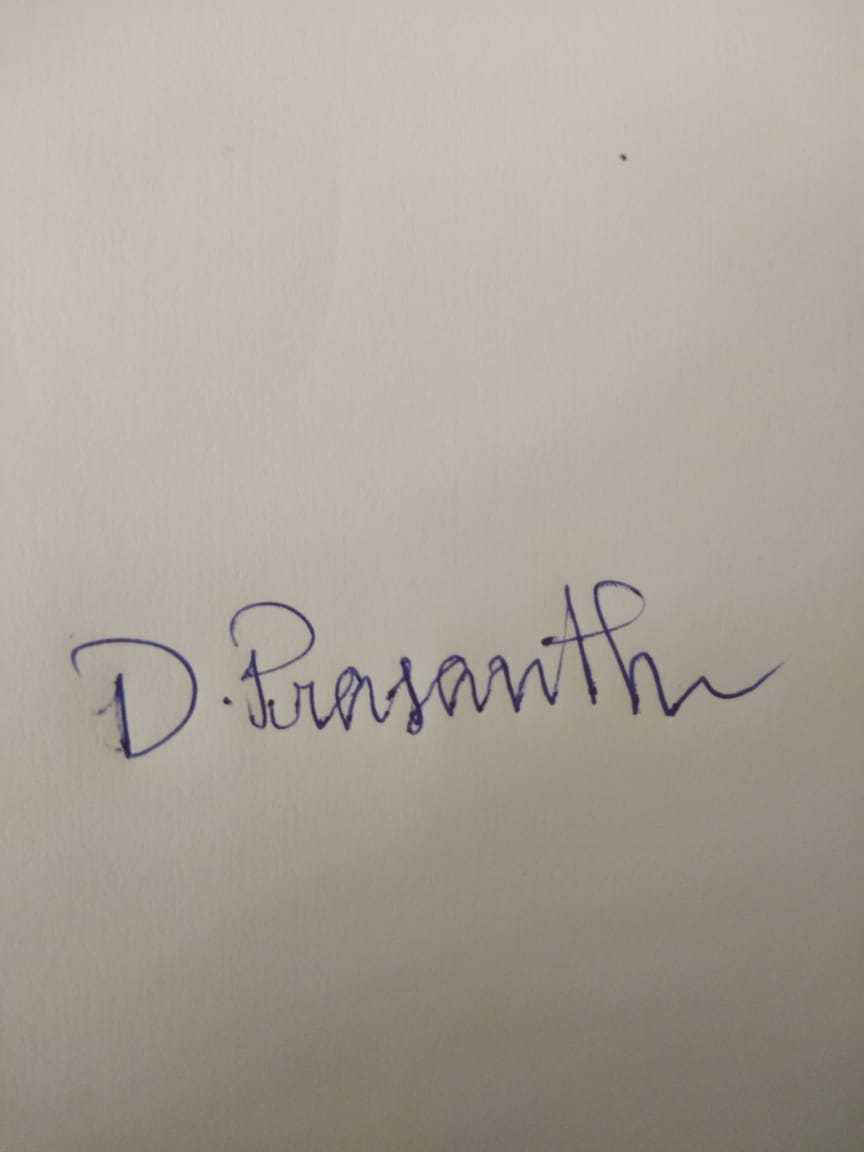 D. Prasanth